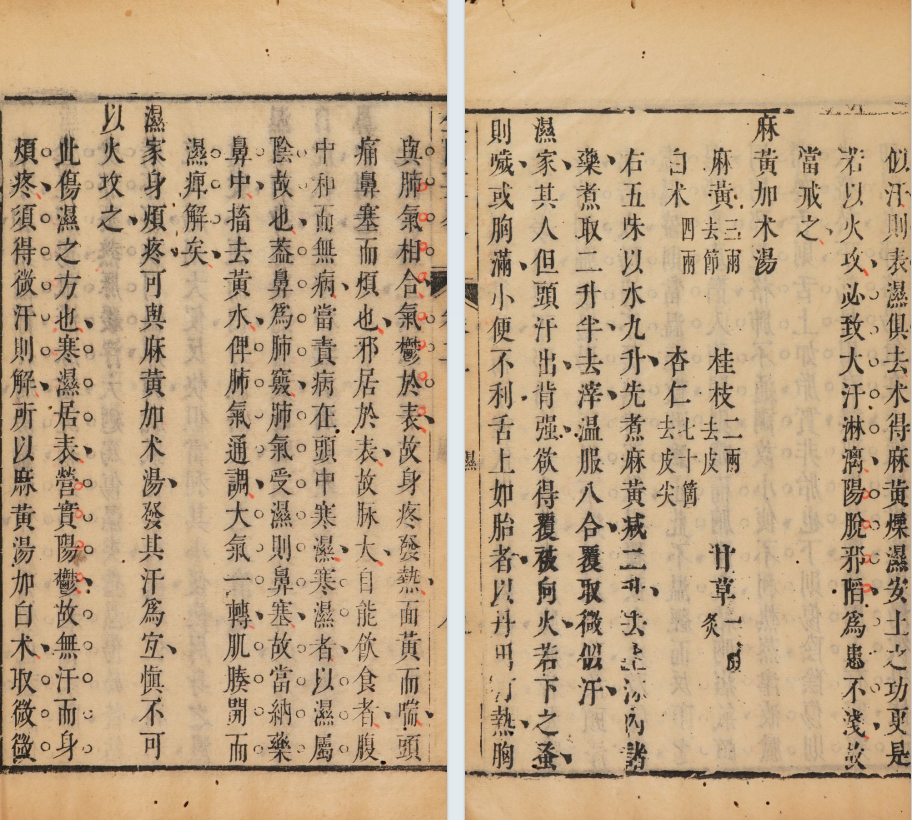 與肺氣相合氣鬱於表故身疼發熱面黃而喘頭
痛鼻塞而煩也邪居於表故脉大自能飲食者腹
中和而無病當責病在頭中寒濕寒濕者以濕屬
陰故也蓋鼻爲肺竅肺氣受濕則鼻塞故當納藥
鼻中搐去黃水俾肺氣通調大氣一轉肌腠開而
濕痺解矣
濕家身煩疼可與麻黃加术湯發其汗爲宜慎不可
以火攻之
此傷濕之方也寒濕居表營實陽鬱故無汗而身
煩疼須得微汗則解所以麻黃湯加白术取微微
似汗則表濕俱去术得麻黃燥濕安土之功更是
若以火攻必致大汗淋漓陽脫邪陷爲患不淺故
當戒之
麻黃加术湯
麻黃三兩去節 桂枝二兩去皮 甘草一兩炙
白术四兩 杏仁七十箇去皮尖
右五味以水九升先煮麻黃減二升去上沫內諸
藥煮取二升半去滓溫服八合覆取微似汗
濕家其人但頭汗出背强欲得覆被向火若下之蚤
則噦或胸滿小便不利舌上如胎者以丹田有熱胸